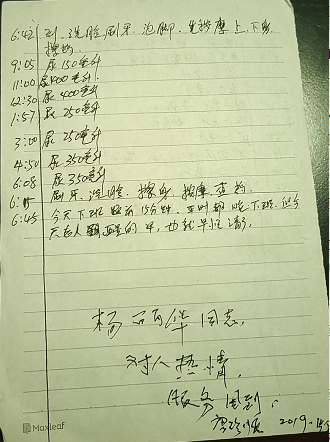 6:42 到、洗脸刷牙、泡脚、按摩上、下身
擦
9:05 尿150毫升
11:00 尿400毫升
12:30 尿400毫升
1:57 尿250毫升
3:00 尿250毫升
4:50 尿350毫升
6:08 尿350毫升
刷牙、洗脸、擦身、按摩
6:45 今天下班 15分钟、平时都晚下班、但今
天 醒的早、也就
杨 华同志，
对人热情，
服务周到。
2019
Maxleaf